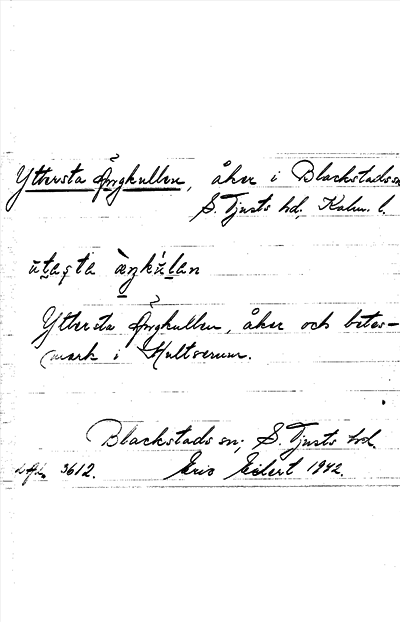 Yttersta Ängkullen, åker i Blackstads sn
S. Tjusts hd, Kalm. l.
Yttersta Ängkullen, åker och betes-
mark i Hultserum.
Blackstads sn, S. Tjusts hd.
3612. Eric Eilert 1942.